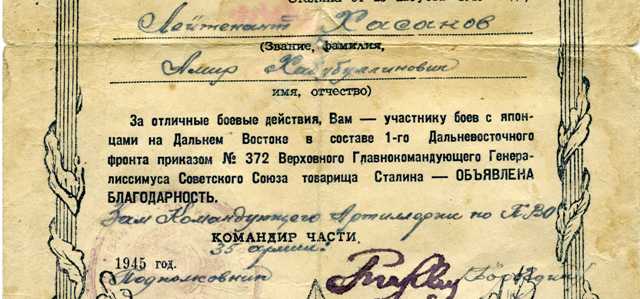 Лейтенант Хасанов
(Звание, фамилия,
Амир Хабибуллинович
имя, отчество)
За отличные боевые действия, Вам — участнику боев с япон-
цами на Дальнем Востоке в составе 1-го Дальневосточного
фронта приказом № 372 Верховного Главнокомандующего Генера-
лиссимуса Советского Союза товарища Сталина — ОБЪЯВЛЕНА
БЛАГОДАРНОСТЬ.
Зам Командующего Артиллерии по ПВО
КОМАНДИР ЧАСТИ
35 армии
1945 год.
Подполковник